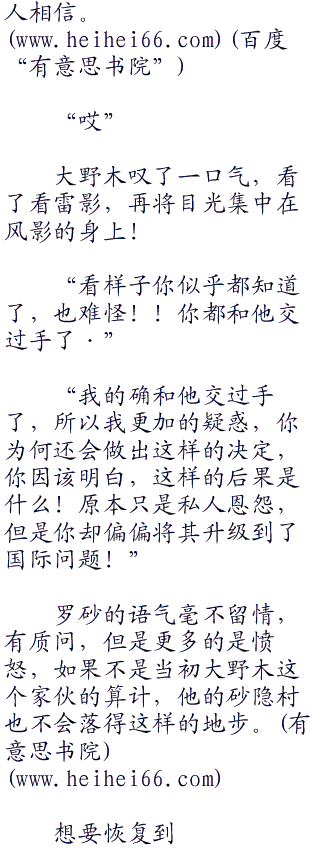 人相信。
(www.heihei66.com) (百度
“有意思书院”)
“哎”
大野木叹了一口气，看
了看雷影，再将目光集中在
风影的身上！
“看样子你似乎都知道
了，也难怪！！你都和他交
过手了·”
“我的确和他交过手
了，所以我更加的疑惑，你
为何还会做出这样的决定，
你因该明白，这样的后果是
什么！原本只是私人恩怨，
但是你却偏偏将其升级到了
国际问题！”
罗砂的语气毫不留情，
有质问，但是更多的是愤
怒，如果不是当初大野木这
个家伙的算计，他的砂隐村
也不会落得这样的地步。(有
意思书院)
(www.heihei66.com)
想要恢复到